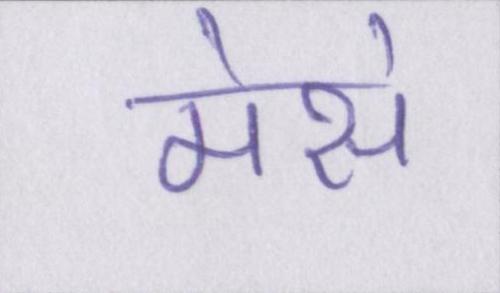 मेसे